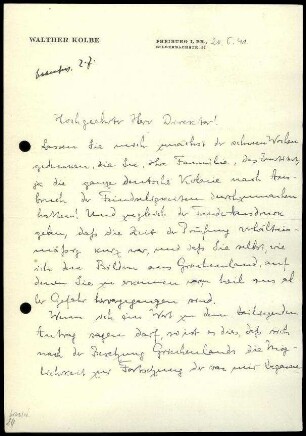 WALTHER KOLBE
FREIBURG I. BR., 20. 6. 41
beantw. 2.7.
Hochgeehrter Herr Direktor!
Lassen Sie mich zunächst der schweren Wochen
gedenken, die Sie, Ihre Familie, das Institut,
ja die ganze deutsche Kolonie nach Aus-
bruch der Feindseligkeiten durchzumachen
hatten! Und zugleich der Freude Ausdruck
geben, daß die Zeit der Prüfung verhältnis-
mässig kurz war, und daß Sie selbst, wie
ich den Bildern aus Griechenland, auf
denen Sie zu erkennen waren, heil aus al-
ler Gefahr hervorgegangen sind.
Wenn ich ein Wort zu dem beiliegenden
Antrag sagen darf, so ist es dies, daß sich
nach der Besetzung Griechenlands die Mög-
lichkeit zur Fortsetzung der von mir begonne